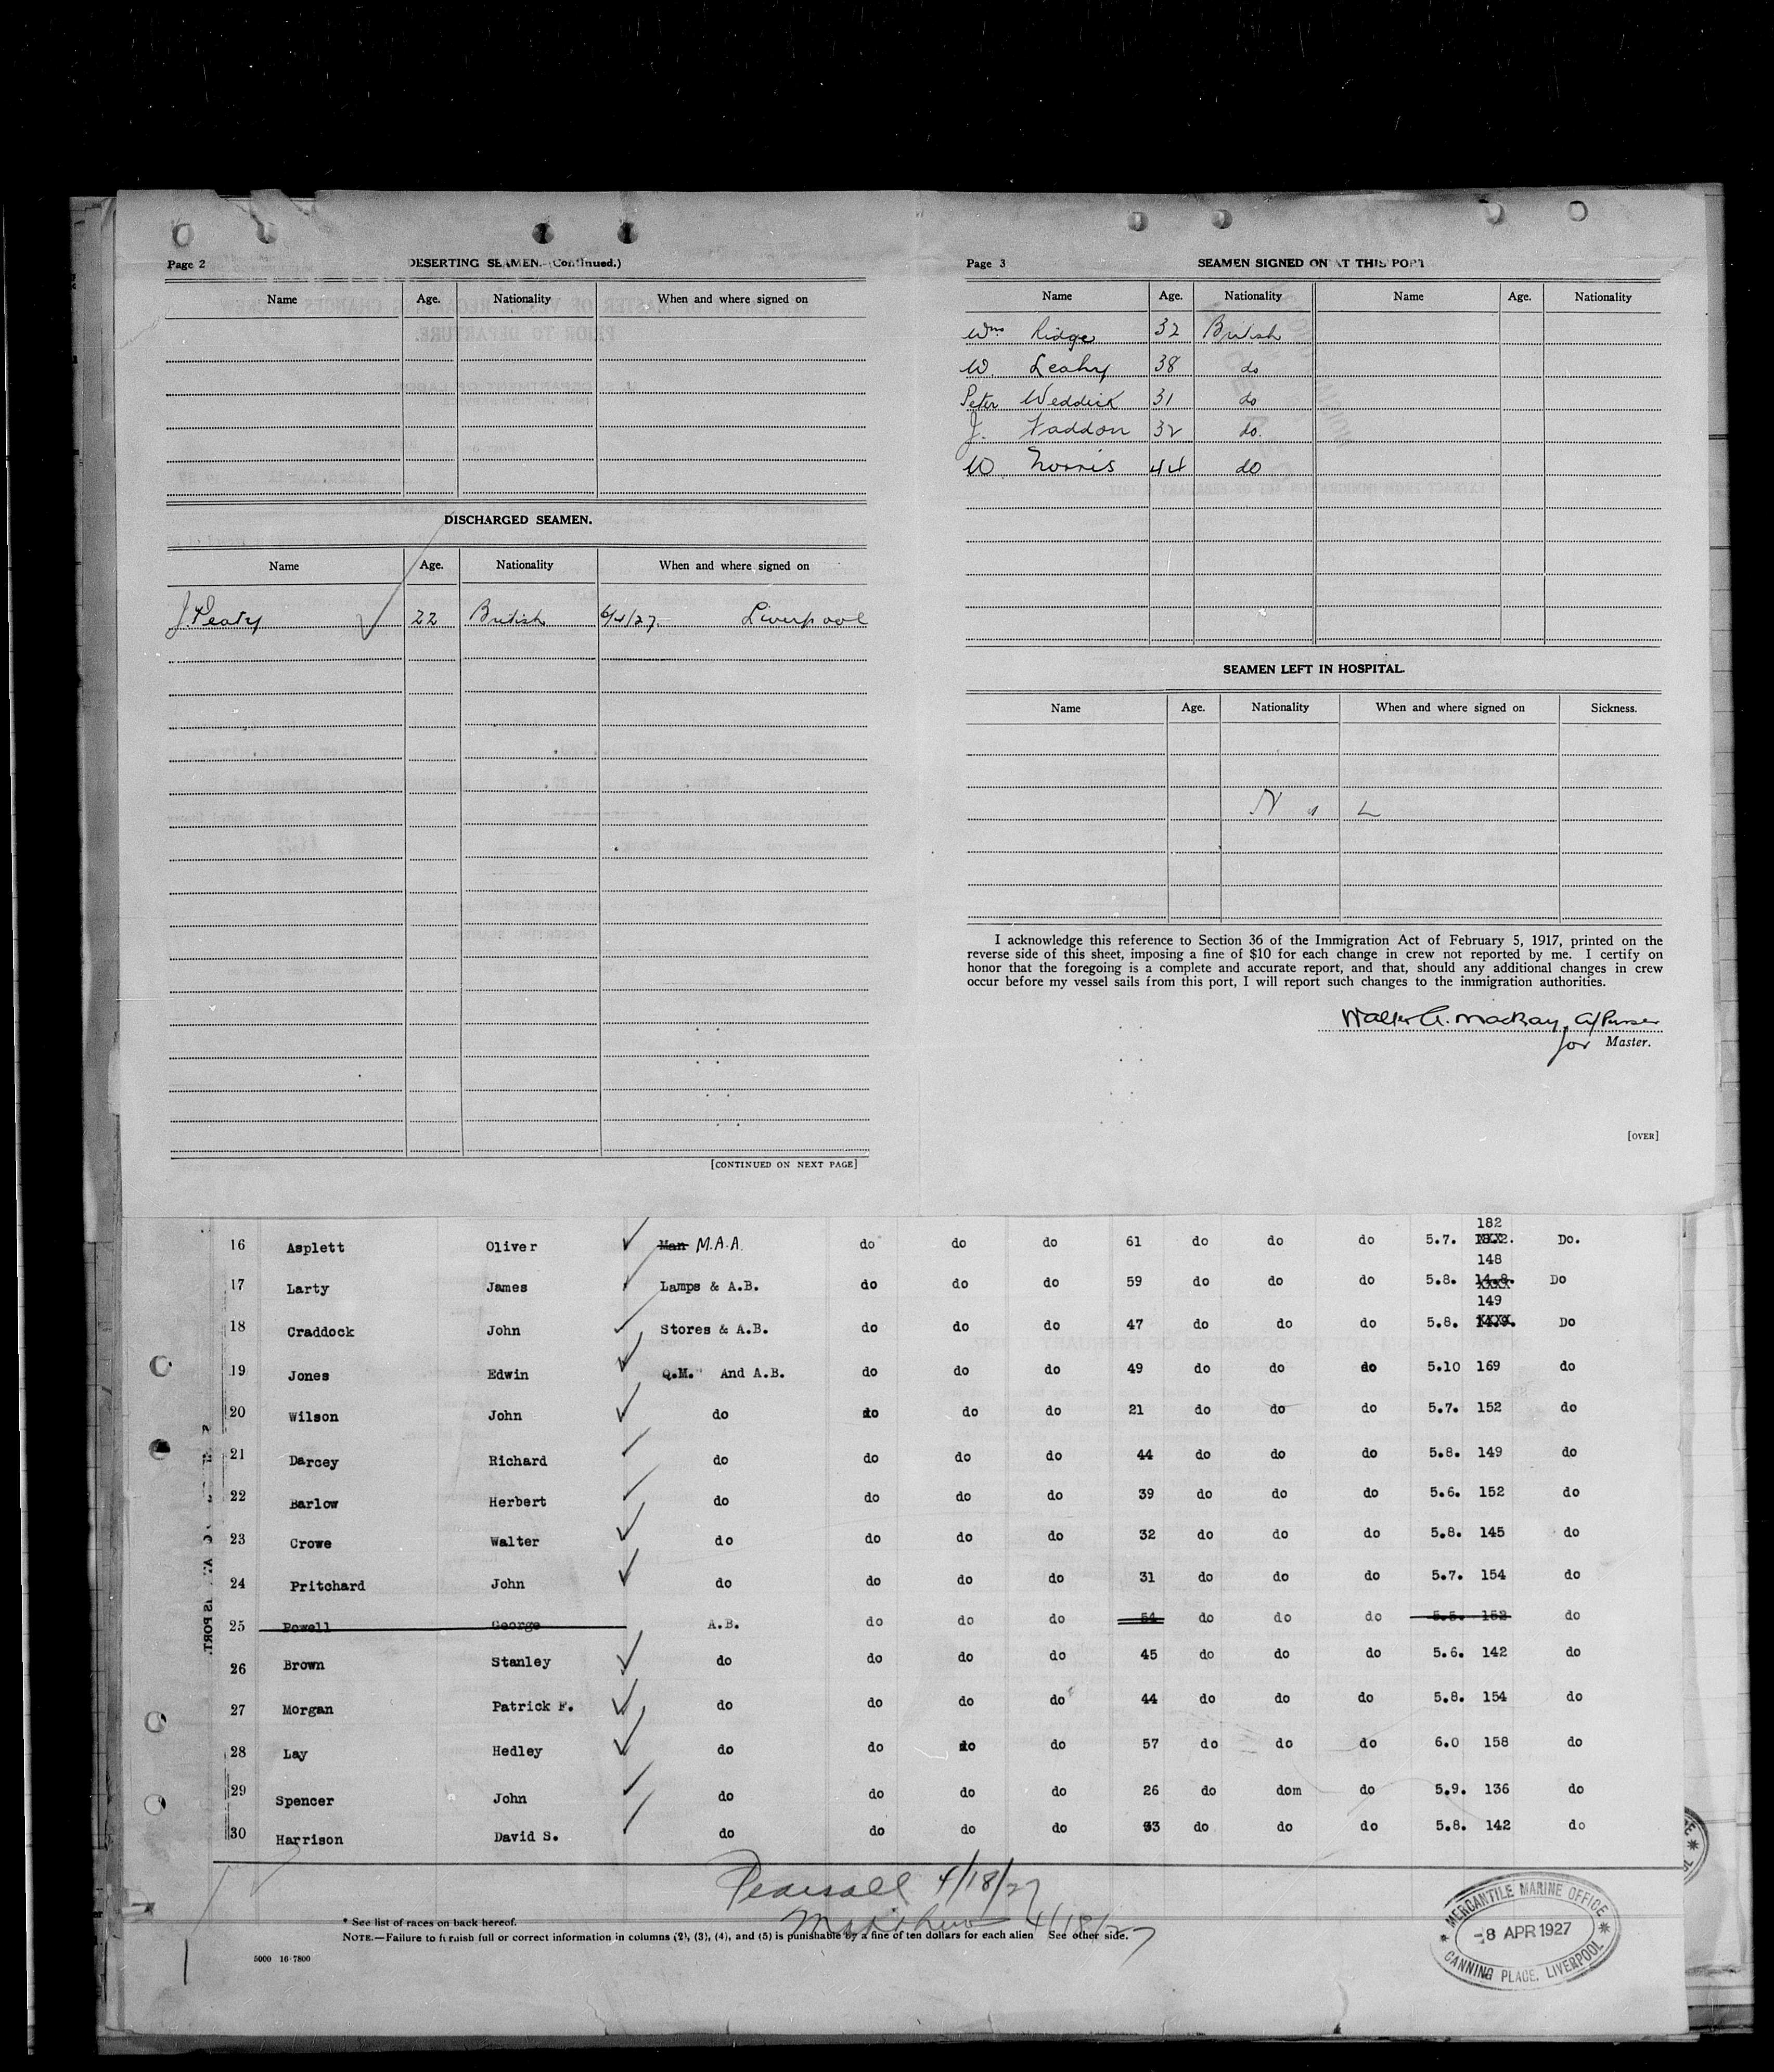 Page 2
DESERTING SEAMEN.-(Continued.)
Name Age. Nationality When and where signed on
DISCHARGED SEAMEN.
Name Age. Nationality When and where signed on
J. Peaty 22 British 6/4/27. Liverpool
[CONTINUED ON NEXT PAGE]
Page 3
SEAMEN SIGNED ON AT THIS PORT
Name Age. Nationality Name Age. Nationality
Wm Ridge 32 British
W. Leahy 38 do
Peter Weddick 31 do
J. Faddon 32 do.
W Norris 44 do
SEAMEN LEFT IN HOSPITAL.
Name Age. Nationality When and where signed on Sickness.
N I L
I acknowledge this reference to Section 36 of the Immigration Act of February 5, 1917, printed on the
reverse side of this sheet, imposing a fine of $10 for each change in crew not reported by me. I certify on
honor that the foregoing is a complete and accurate report, and that, should any additional changes in crew
occur before my vessel sails from this port, I will report such changes to the immigration authorities.
Walter A. MacKay, A/Purser
for Master.
[OVER]
182
16 Asplett Oliver Man M.A.A. do do do 61 do do do 5.7. Do.
148
17 Larty James Lamps & A.B. do do do 59 do do do 5.8. 14.8. Do
149
18 Craddock John Stores & A.B. do do do 47 do do do 5.8. 14.9. Do
19 Jones Edwin Q.M." And A.B. do do do 49 do do do 5.10 169 do
20 Wilson John do do do do 21 do do do 5.7. 152 do
21 Darcey Richard do do do do 44 do do do 5.8. 149 do
22 Barlow Herbert do do do do 39 do do do 5.6. 152 do
23 Crowe Walter do do do do 32 do do do 5.8. 145 do
24 Pritchard John do do do do 31 do do do 5.7. 154 do
25 Powell George A.B. do do do 54 do do do 5.5. 152 do
26 Brown Stanley do do do do 45 do do do 5.6. 142 do
27 Morgan Patrick F. do do do do 44 do do do 5.8. 154 do
28 Lay Hedley do do do do 57 do do do 6.0 158 do
29 Spencer John do do do do 26 do dom do 5.9. 136 do
30 Harrison David S. do do do do 33 do do do 5.8. 142 do
Pearsall 4/18/27
4/18/27
* See list of races on back hereof.
NOTE.—Failure to furnish full or correct information in columns (2), (3), (4), and (5) is punishable by a fine of ten dollars for each alien See other side.
5000 16-7800
MERCANTILE MARINE OFFICE
-8 APR 1927
CANNING PLACE, LIVERPOOL